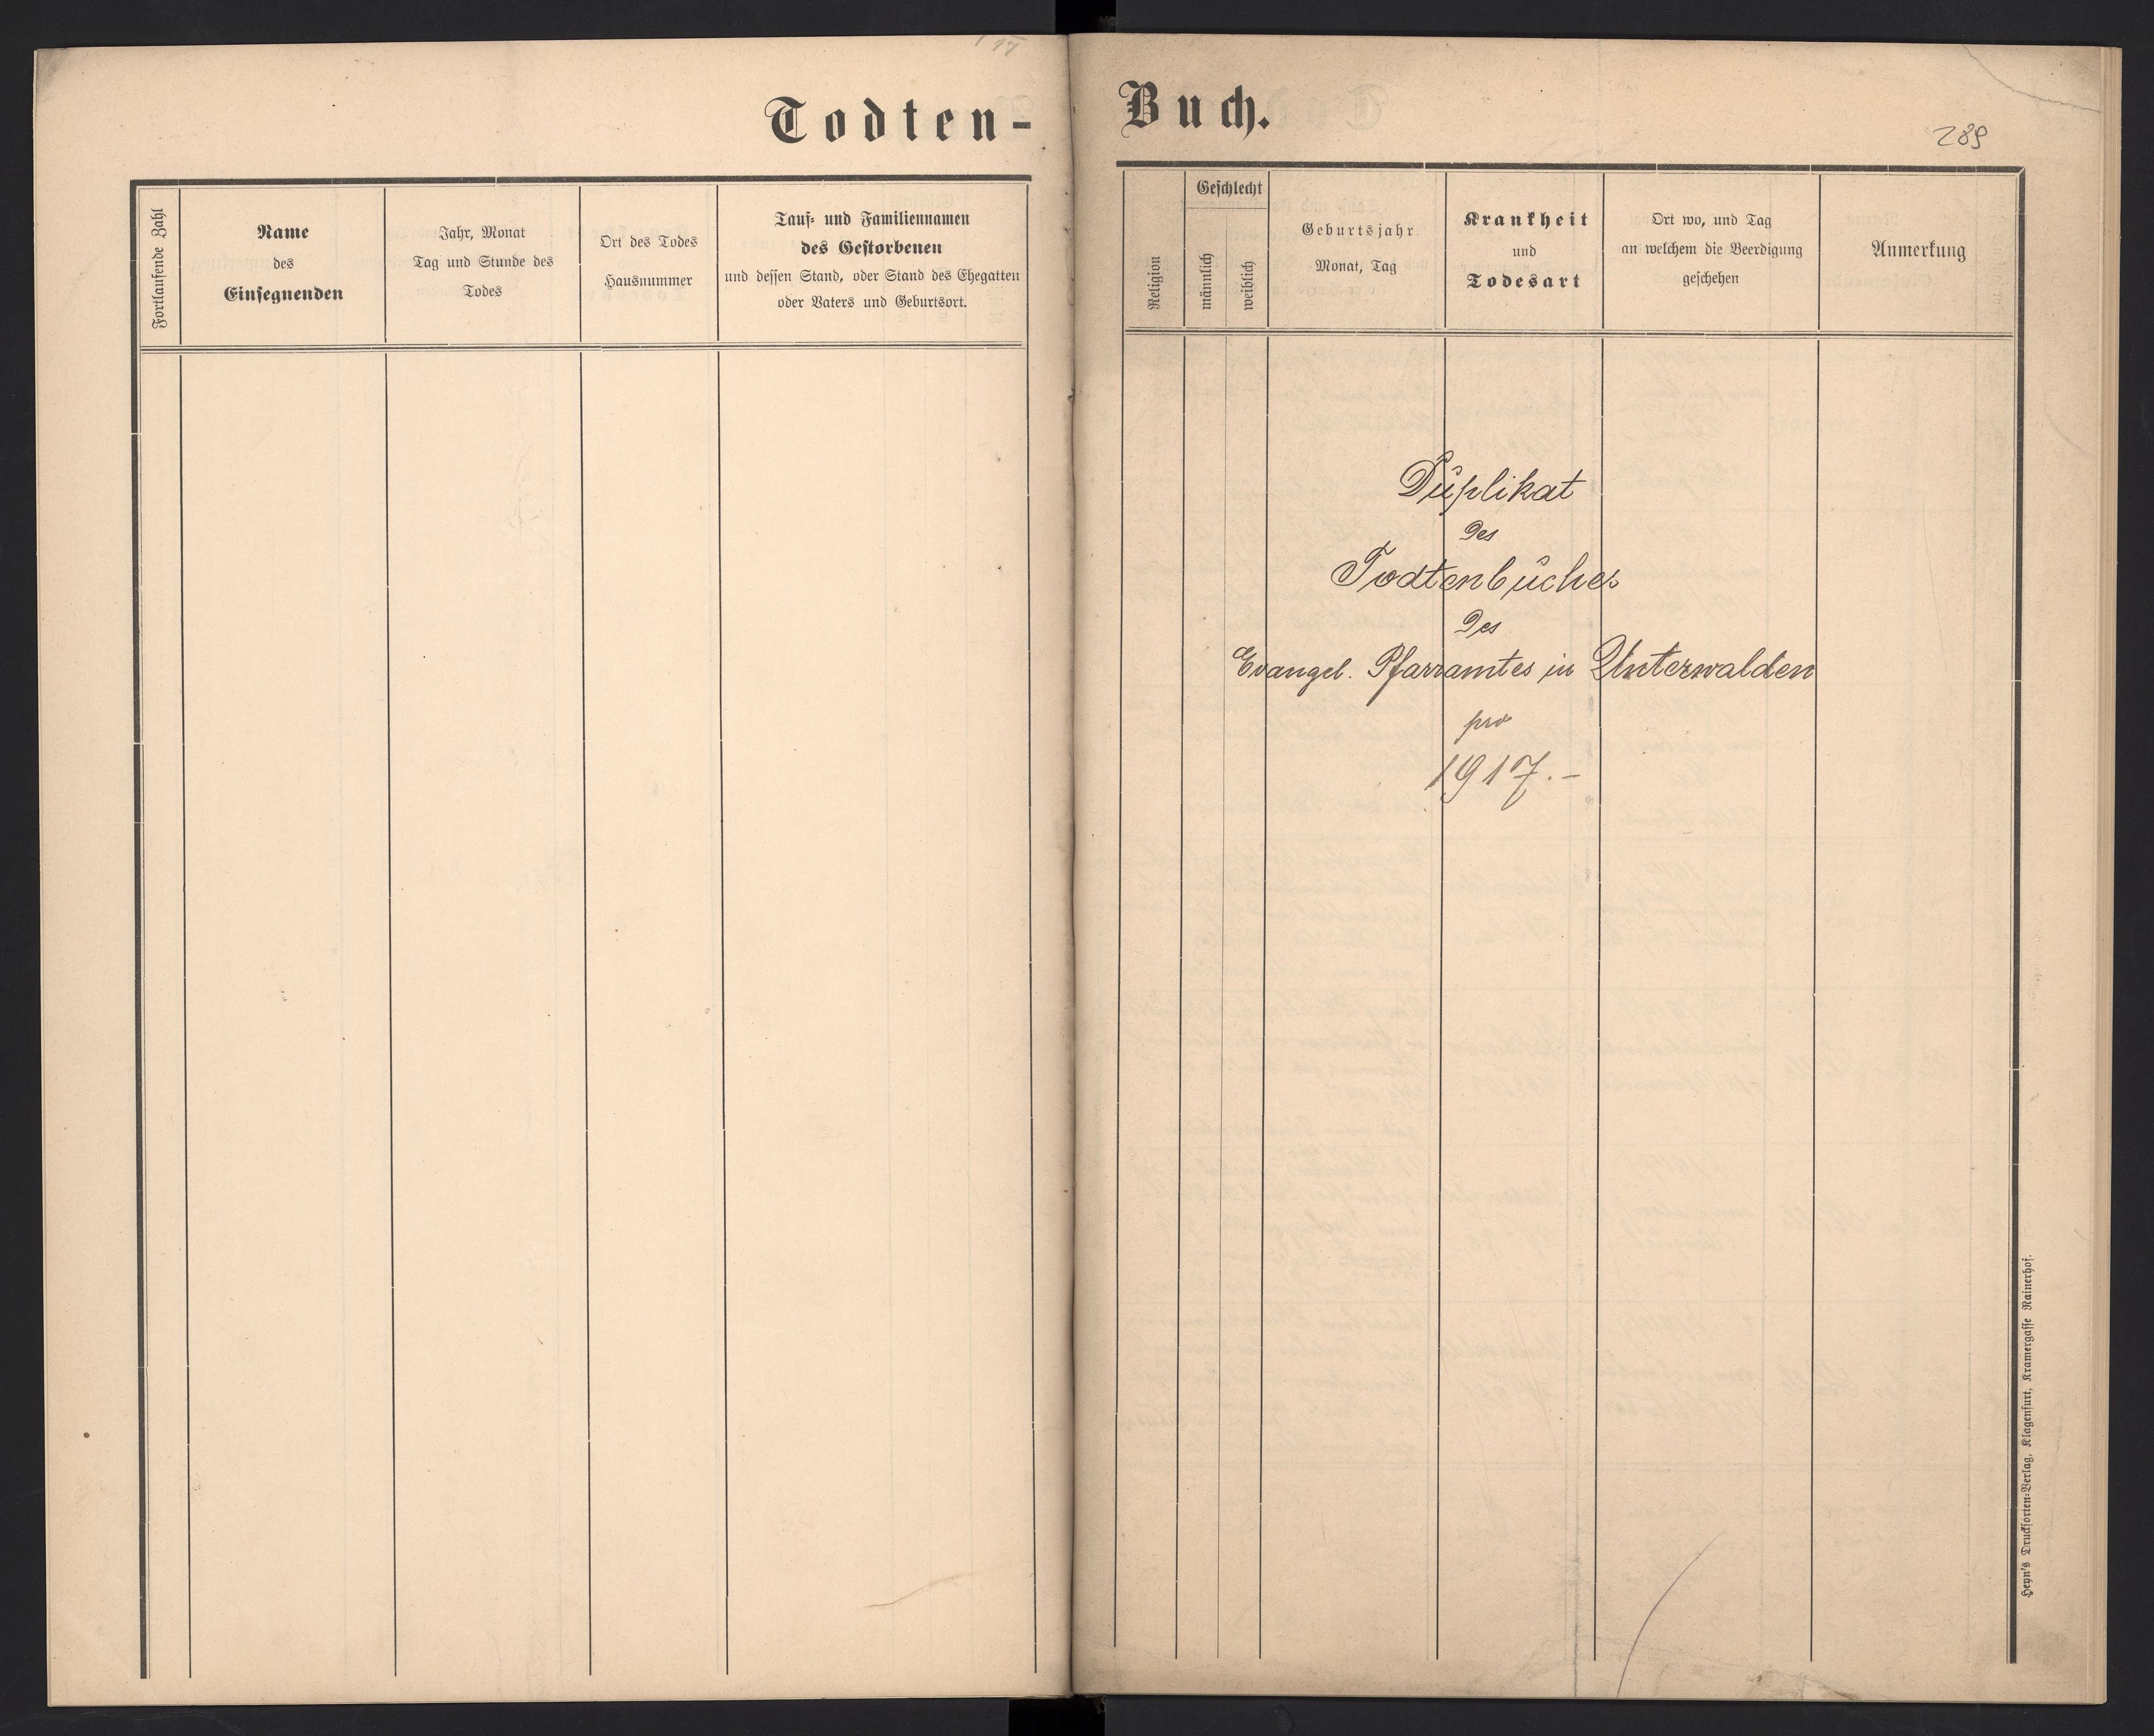 Todten-Buch.
289
Fortlaufende Zahl
Name
des
Einsegnenden
Jahr, Monat
Tag und Stunde des
Todes
Ort des Todes
Hausnummer
Tauf- und Familiennamen
des Gestorbenen
und dessen Stand, oder Stand des Ehegatten
oder Vaters und Geburtsort.
Religion
Geschlecht
männlich
weiblich
Geburtsjahr
Monat, Tag
Krankheit
und
Todesart
Ort wo, und Tag
an welchem die Beerdigung
geschehen
Anmerkung
Duplikat
des
Todtenbuches
des
Evangel. Pfarramtes in Unterwalden
pro
1917.–
Heyn's Drucksorten-Verlag, Klagenfurt, Kramergasse Rainerhof.